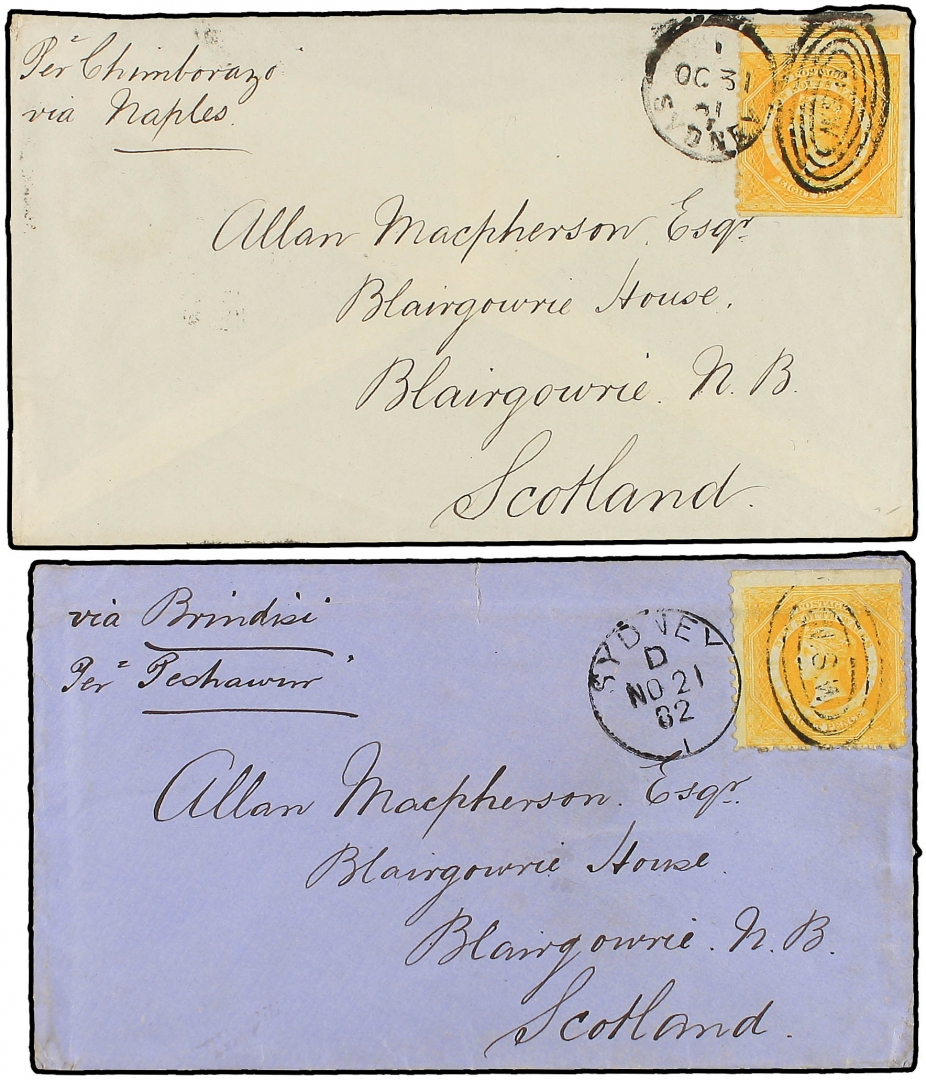 Per Chimborazo
via Naples.
OC 31
SYDNEY
POSTAGE
EIGHT PENCE
NSW
Allan Macpherson Esqr.
Blairgowrie House.
Blairgowrie. N. B.
Scotland.
via Brindisi
Per "Peshawur"
SYDNEY
D
NO 21
82
1
POSTAGE
EIGHT PENCE
NSW
Allan Macpherson. Esqr.
Blairgowrie House.
Blairgowrie. N. B.
Scotland.